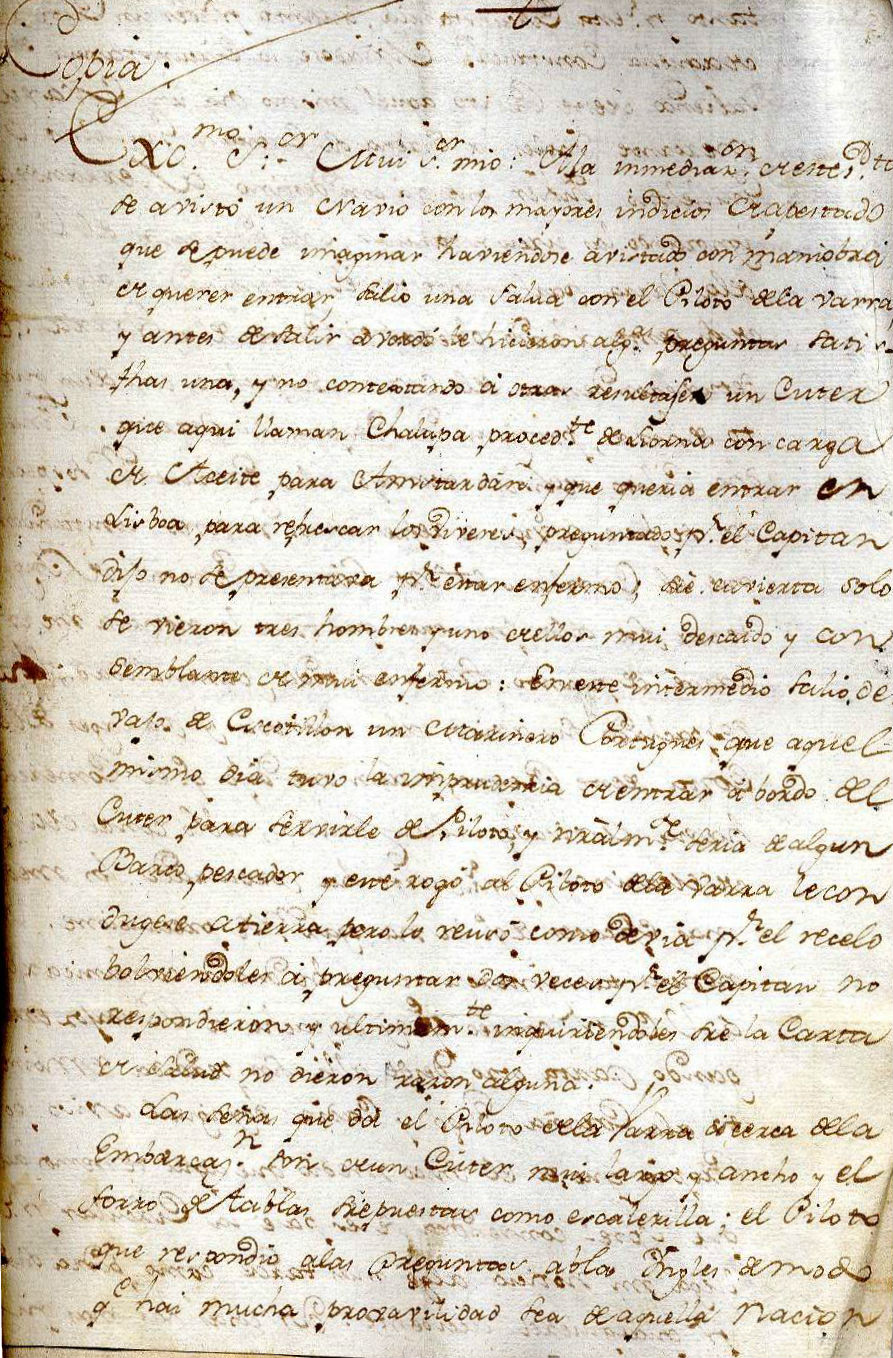 Copia.
Exc.mo S.or Mui S.or mio: A la inmediac.on de este P.to
se avistó un Navio con los mayores indicios de apestado
que se puede imaginar haviendose avistado con maniobra
de querer entrar, salio una falua con el Piloto de la varra
y antes de salir a vordo le hicieron alg.s preguntas satis
fhas una, y no contextando á otras resulta ser un Cuter
que aqui llaman Chalupa proced.te de Liorna con carga
de Aceite para Amstardam y que queria entrar en
Lisboa para refrescar los viveres, preguntado p.r el Capitan
dijo no se presentava p.r estar enfermo; sre cuvierta solo
se vieron tres hombres y uno de ellos mui descaido y con
semblante de mui enfermo: En este intermedio salio de
vajo de Escotillon un Marinero Portugues que aquel
mismo dia tuvo la imprudencia de entrar á bordo del
Cuter para servirle de Piloto, y natralm.te seria de algun
Barco pescador y este rogó al Piloto de la varra le con
dugese a tierra pero lo reusó como devia p.r el recelo
bolviendoles á preguntar dos veces p.r el Capitan no
respondieron y ultimam.te inquiriendoles sre la Carta
de salud no dieron razon alguna.
Las señas que da el Piloto de la Varra acerca de la
Embarcaz.n son de un Cuter mui largo y ancho y el
forro de tablas srepuestas como escalerilla; el Piloto
que respondio a las preguntas abla Yngles de modo
q.e hai mucha provavilidad sea de aquella Nacion